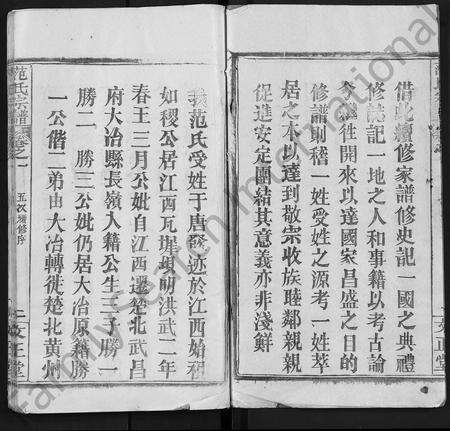 借此續修家譜修史記一國之典禮
修誌記一地之人和事籍以考古論
今繼往開來以達國家昌盛之目的
修譜則稽一姓受姓之源考一姓萃
居之本以達到敬宗收族睦鄰親親
促進安定團結其意義亦非淺鮮
文正堂
范氏宗譜
卷之一
五次續修序
文正堂
我范氏受姓于唐發迹於江西始祖
如稷公居江西瓦堤壩前洪武二年
春王三月公妣自江西遷楚北武昌
府大冶縣長嶺入籍公生三子勝一
勝二 勝三公妣仍居大冶原籍勝
一公偕二弟由大冶轉徙楚北黃州
FamilySearch International